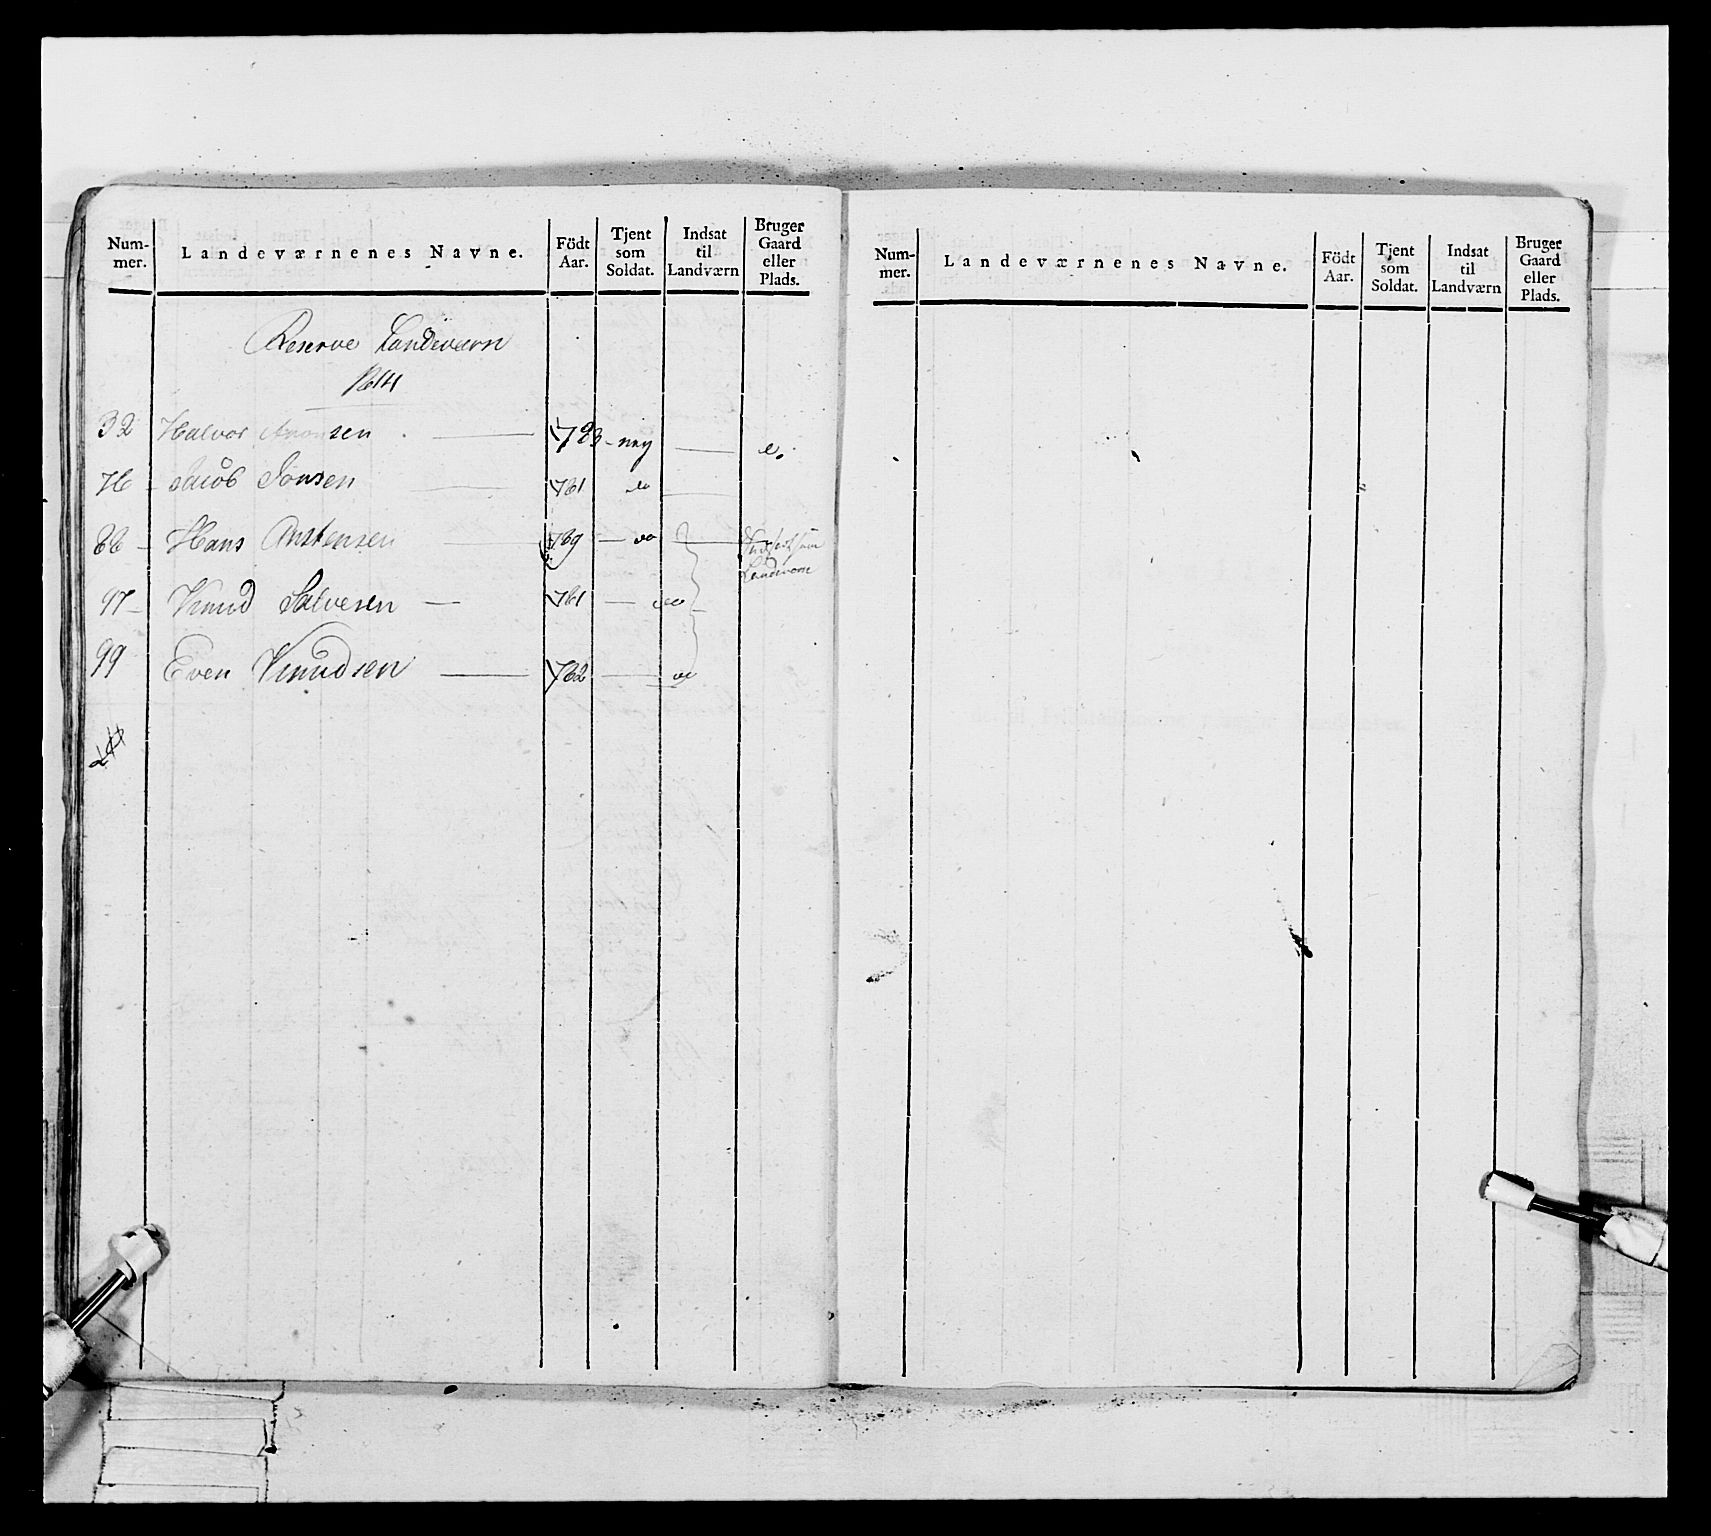 Num-
mer.
Landeværnenes Navne.
Födt
Aar.
Tjent
som
Soldat.
Indsat
til
Landværn
Bruger
Gaard
eller
Plads.
Reserve Landeværn
1814
32 Halvor Aronsen 783 - ney
76 - Jacob Jonsen 761 do
86 - Hans Anstensen 769 - do
Landeværn
97 - Knud Salvesen - 761 - do
99 Even Knudsen 762 - do
Num-
mer.
Landeværnenes Navne.
Födt
Aar.
Tjent
som
Soldat.
Indsat
til
Landværn
Bruger
Gaard
eller
Plads.